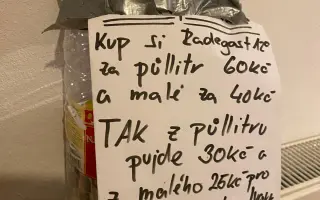 Kup si Radegast 12°
za půllitr 60kč
a malé za 40kč
TAK z půllitru
pujde 30kč a
z malého 25kč pro